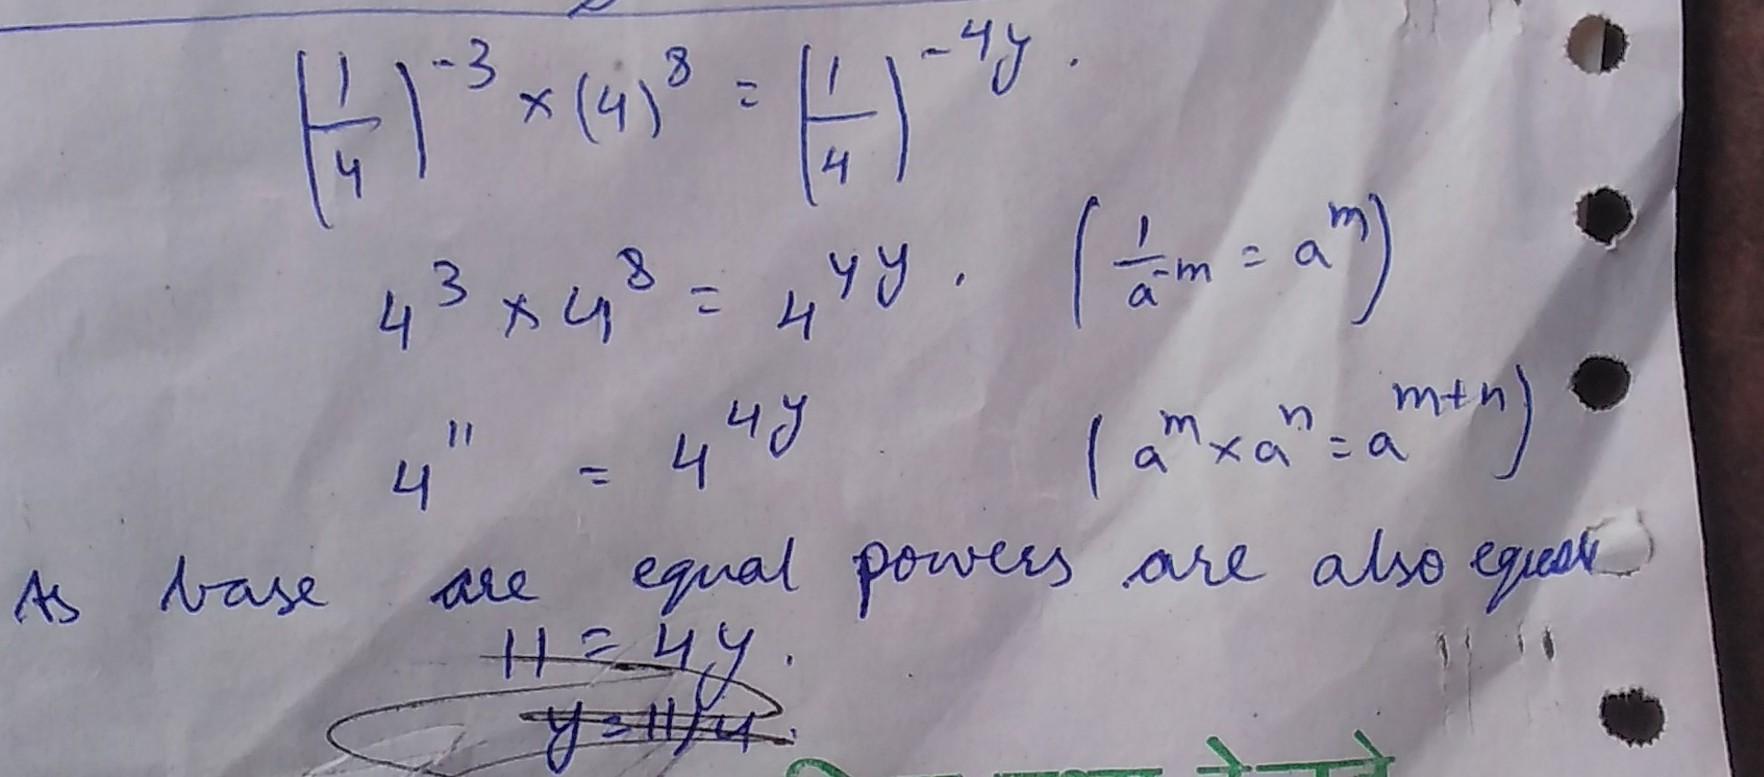 (1/4)^-3 × (4)^8 = (1/4)^-4y .
4^3 × 4^8 = 4^4y . (1/a^-m = a^m)
4^11 = 4^4y (a^m × a^n = a^m+n)
As base are equal powers are also equal
11 = 4y .
y = 11/4 .